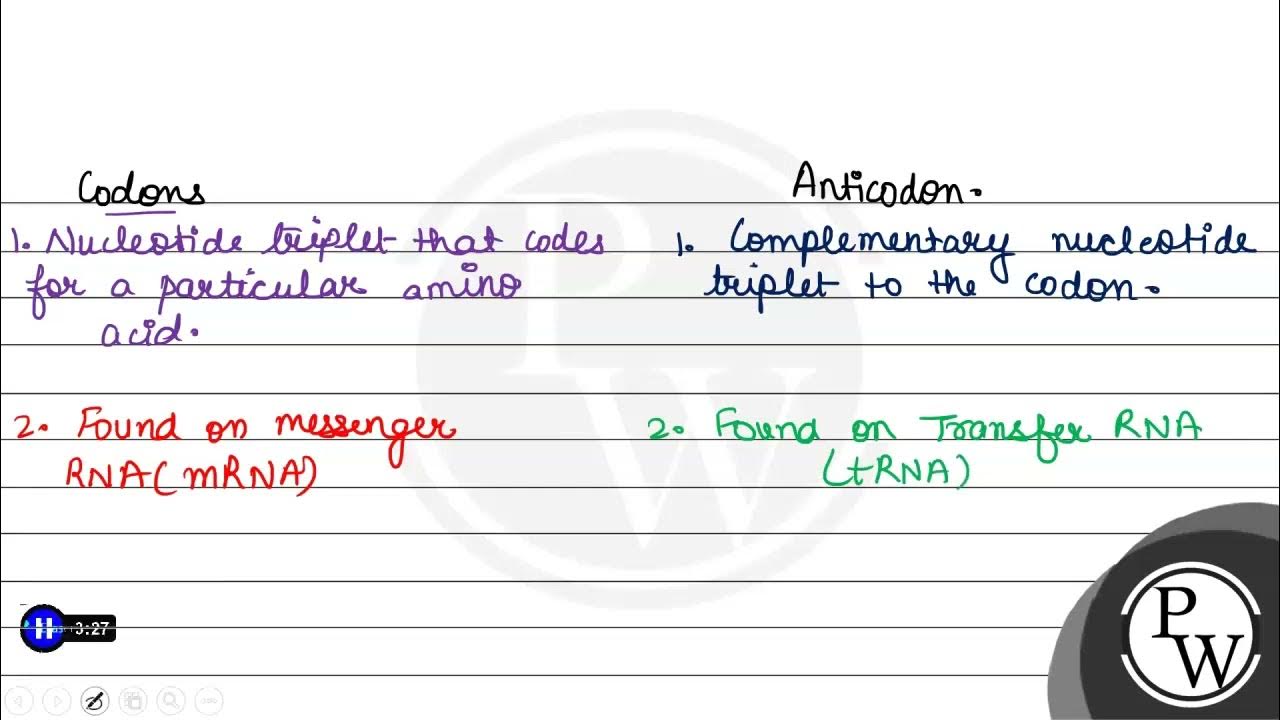 Codons
1. Nucleotide triplet that codes
for a particular amino
acid.
2. Found on messenger
RNA (mRNA)
Anticodon.
1. Complementary nucleotide
triplet to the codon.
2. Found on Transfer RNA
(tRNA)
3:27
PW
PW